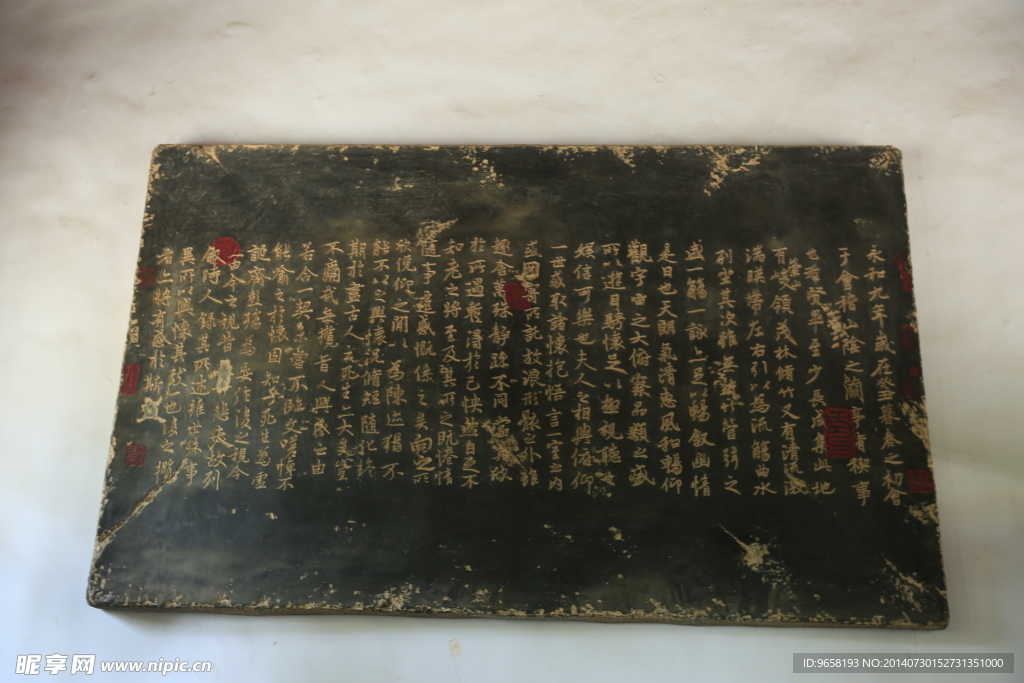 永和九年歲在癸丑暮春之初會
于會稽山陰之蘭亭脩稧事
也羣賢畢至少長咸集此地
有峻領茂林脩竹又有清流激
湍暎帶左右引以為流觴曲水
列坐其次雖無絲竹管弦之
盛一觴一詠亦足以暢叙幽情
是日也天朗氣清惠風和暢仰
觀宇宙之大俯察品類之盛
所以遊目騁懷足以極視聽之
娛信可樂也夫人之相與俯仰
一世或取諸懷抱悟言一室之內
或因寄所託放浪形骸之外雖
趣舍萬殊靜躁不同當其欣
於所遇暫得於己快然自足不
知老之將至及其所之既惓情
隨事遷感慨係之矣向之所
欣俛仰之閒以為陳迹猶不
能不以之興懷況脩短隨化終
期於盡古人云死生亦大矣豈
不痛哉每攬昔人興感之由
若合一契未嘗不臨文嗟悼不
能喻之於懷固知一死生為虛
誕齊彭殤為妄作後之視今
亦由今之視昔悲夫故列
敘時人錄其所述雖世殊事
異所以興懷其致一也後之攬
者亦將有感於斯文
昵享网 www.nipic.cn
ID:9658193 NO:20140730152731351000